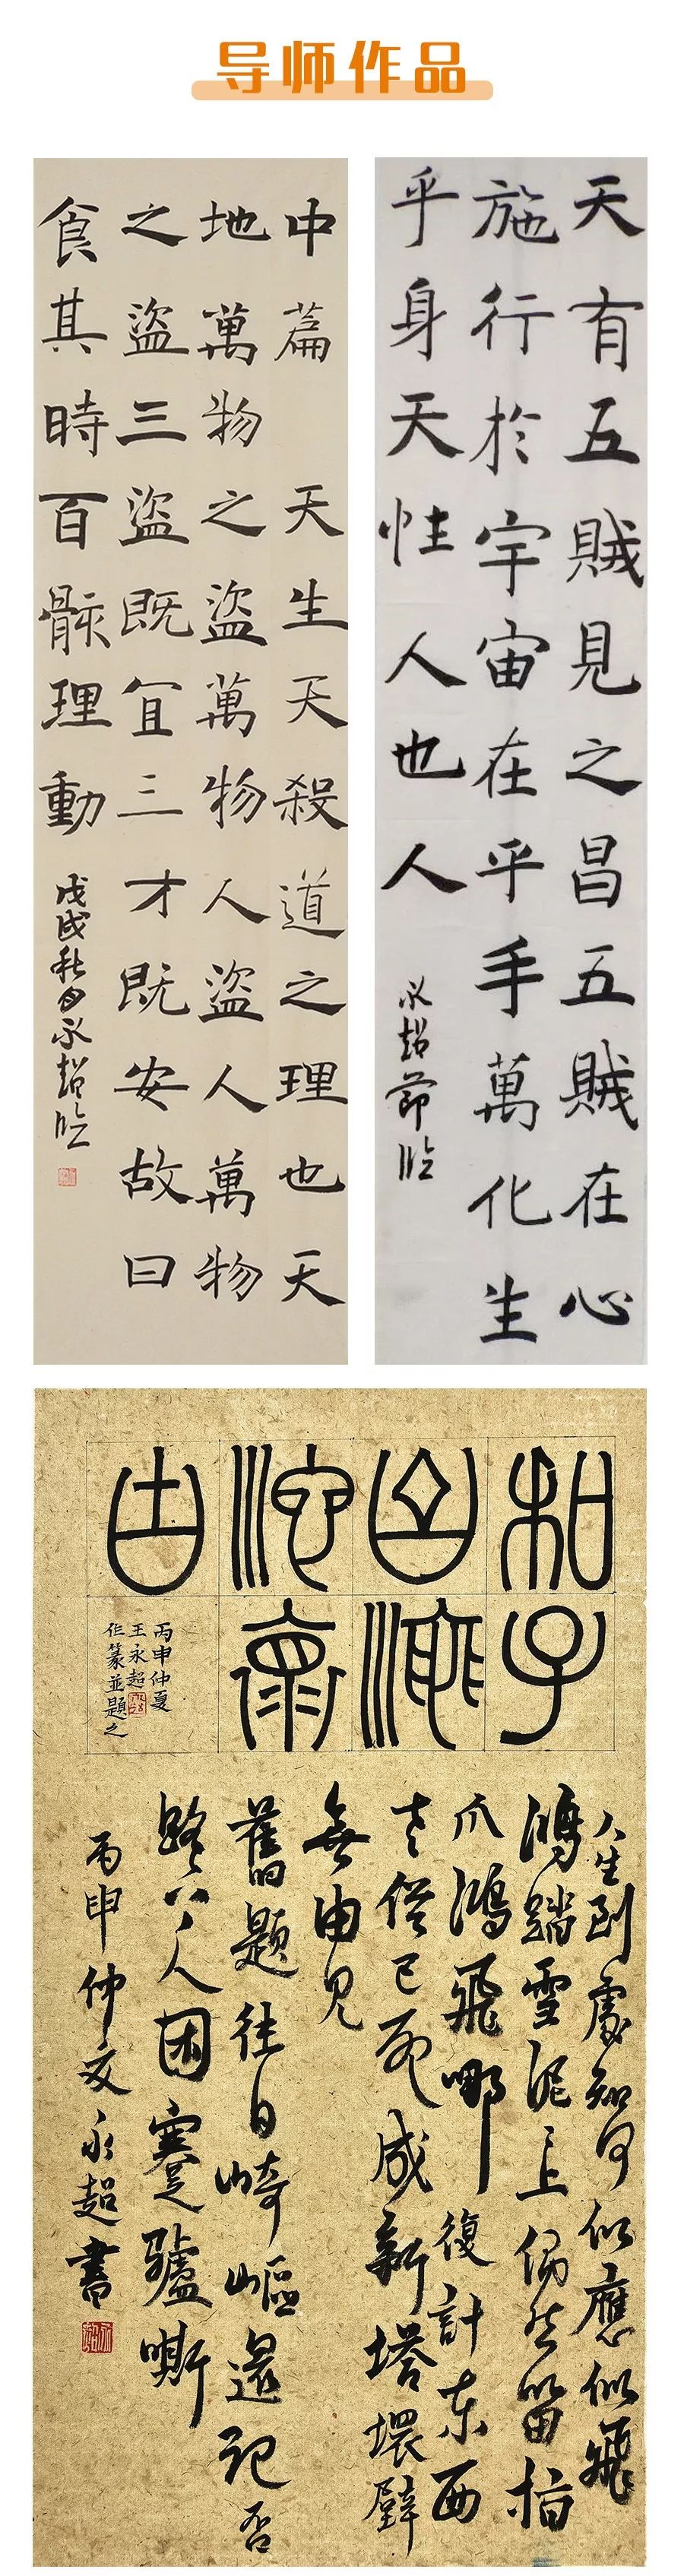 导师作品
中篇 天生天殺道之理也天
地萬物之盜萬物人盜人萬物
之盜三盜既宜三才既安故曰
食其時百骸理動
戊戌秋月永超臨
天有五賊見之昌五賊在心
施行於宇宙在乎手萬化生
乎身天性人也人
永超節臨
和子
由澠
池懷
古
丙申仲夏
王永超
作篆並題之
人生到處知何似應似飛
鴻踏雪泥上偶然留指
爪鴻飛哪復計東西
老僧已死成新塔壞壁
無由見
舊題往日崎嶇還記否
路人困蹇驢嘶
丙申仲夏永超書